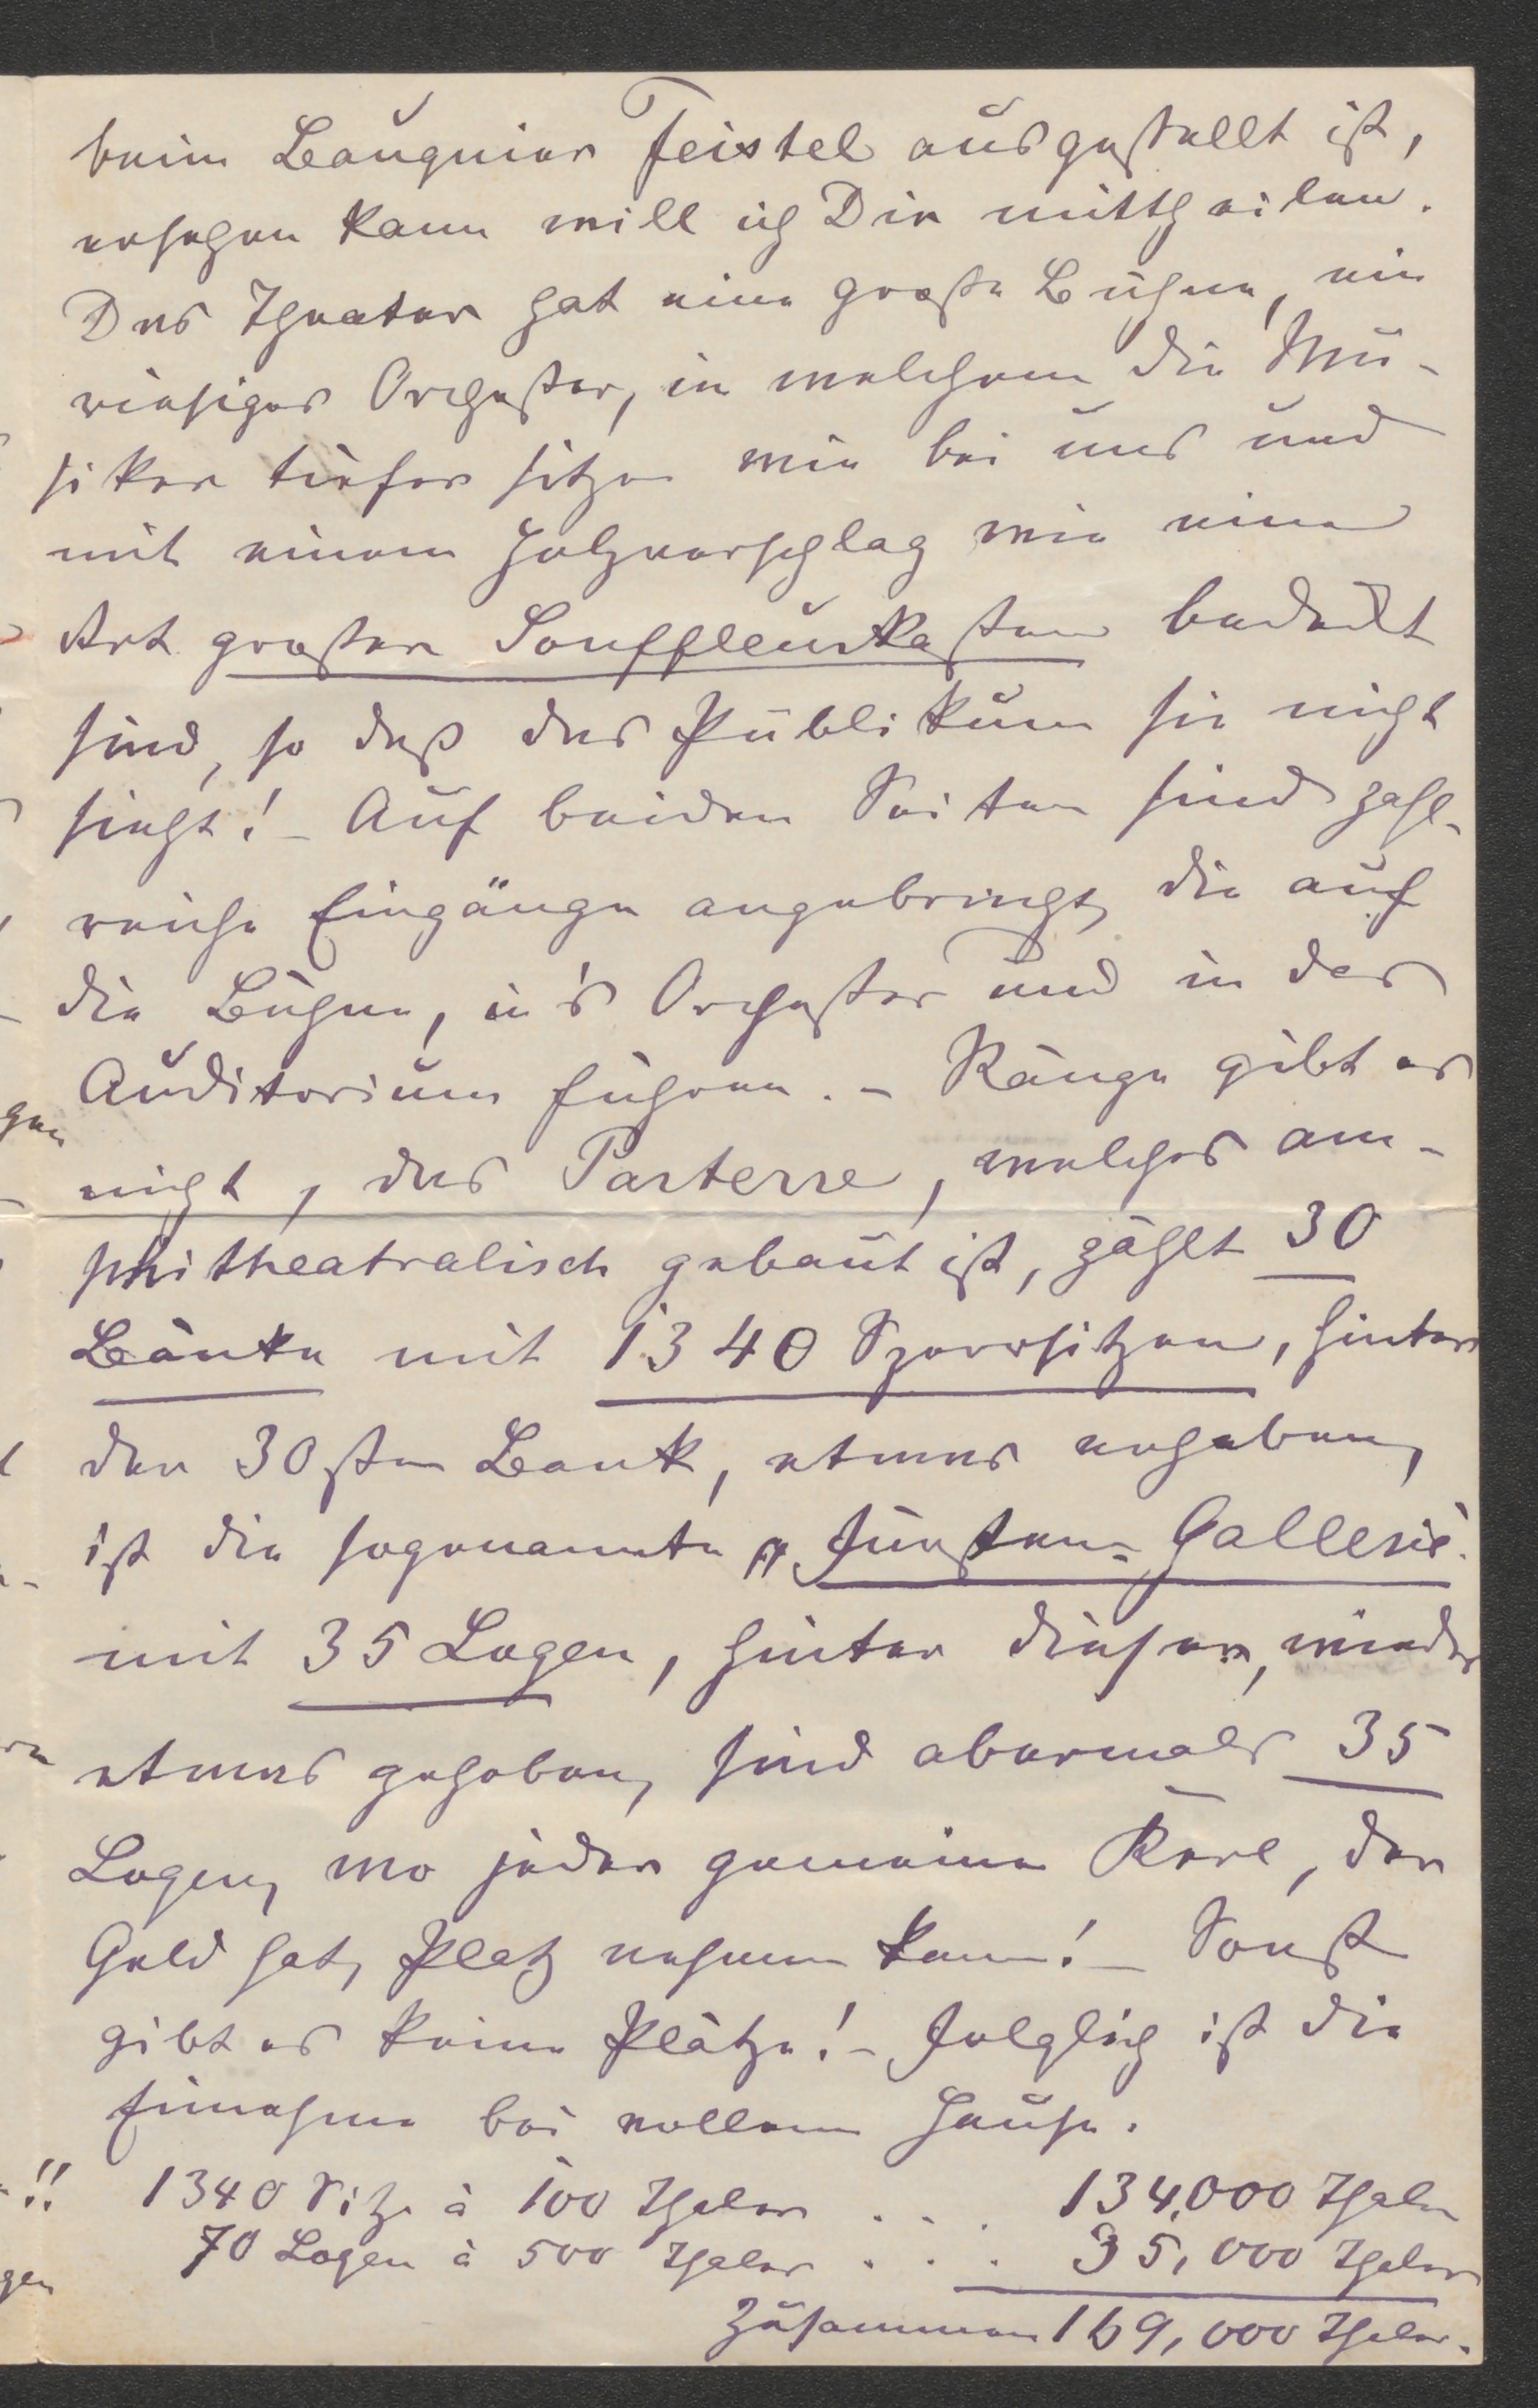 beim Bauquier Feistel ausgestellt ist,
ersehen kann will ich Dir mittheilen.
Das Theater hat eine große Bühne, ein
riesiges Orchester, in welchem die Mu-
siker tiefer sitzen wie bei uns und
mit einem Holzverschlag wie eine
Art großer Souffleurkasten bedeckt
sind, so daß das Publikum sie nicht
sieht! – Auf beiden Seiten sind zahl-
reiche Eingänge angebracht, die auf
die Bühne, in's Orchester und in das
Auditorium führen. – Ränge gibt es
nicht, das Parterre, welches am-
phitheatralisch gebaut ist, zählt 30
Bänke mit 1340 Sperrsitzen, hinter
der 30sten Bank, etwas erhaben,
ist die sogenannte „Fürsten-Gallerie"
mit 35 Logen, hinter dieser, wieder
etwas gehoben, sind abermals 35
Logen, wo jeder gemeine Kerl, der
Geld hat, Platz nehmen kann! – Sonst
gibt es keine Plätze! – Folglich ist die
Einnahme bei vollem Hause.
1340 Sitze à 100 Thaler . . . 134,000 Thaler
70 Logen à 500 Thaler . . . 35,000 Thaler
Zusammen 169,000 Thaler.